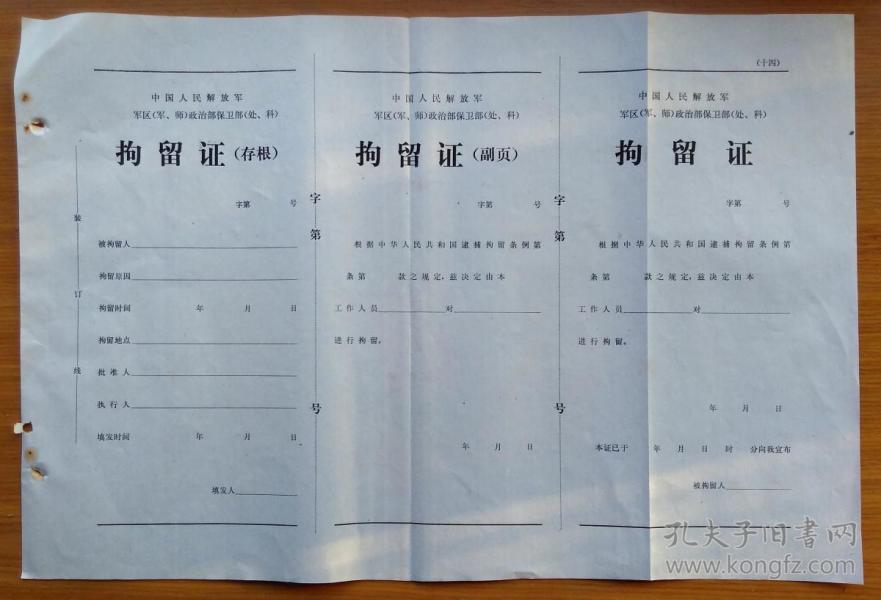 装
订
线
中国人民解放军
军区(军、师)政治部保卫部(处、科)
拘留证(存根)
字第 号
被拘留人
拘留原因
拘留时间 年 月 日
拘留地点
批准人
执行人
填发时间 年 月 日
填发人
字第 号
中国人民解放军
军区(军、师)政治部保卫部(处、科)
拘留证(副页)
字第 号
根据中华人民共和国逮捕拘留条例第
条第 款之规定,兹决定由本
工作人员 对
进行拘留。
年 月 日
字第 号
(十四)
中国人民解放军
军区(军、师)政治部保卫部(处、科)
拘留证
字第 号
根据中华人民共和国逮捕拘留条例第
条第 款之规定,兹决定由本
工作人员 对
进行拘留。
年 月 日
本证已于 年 月 日 时 分向我宣布
被拘留人
孔夫子旧书网
www.kongfz.com